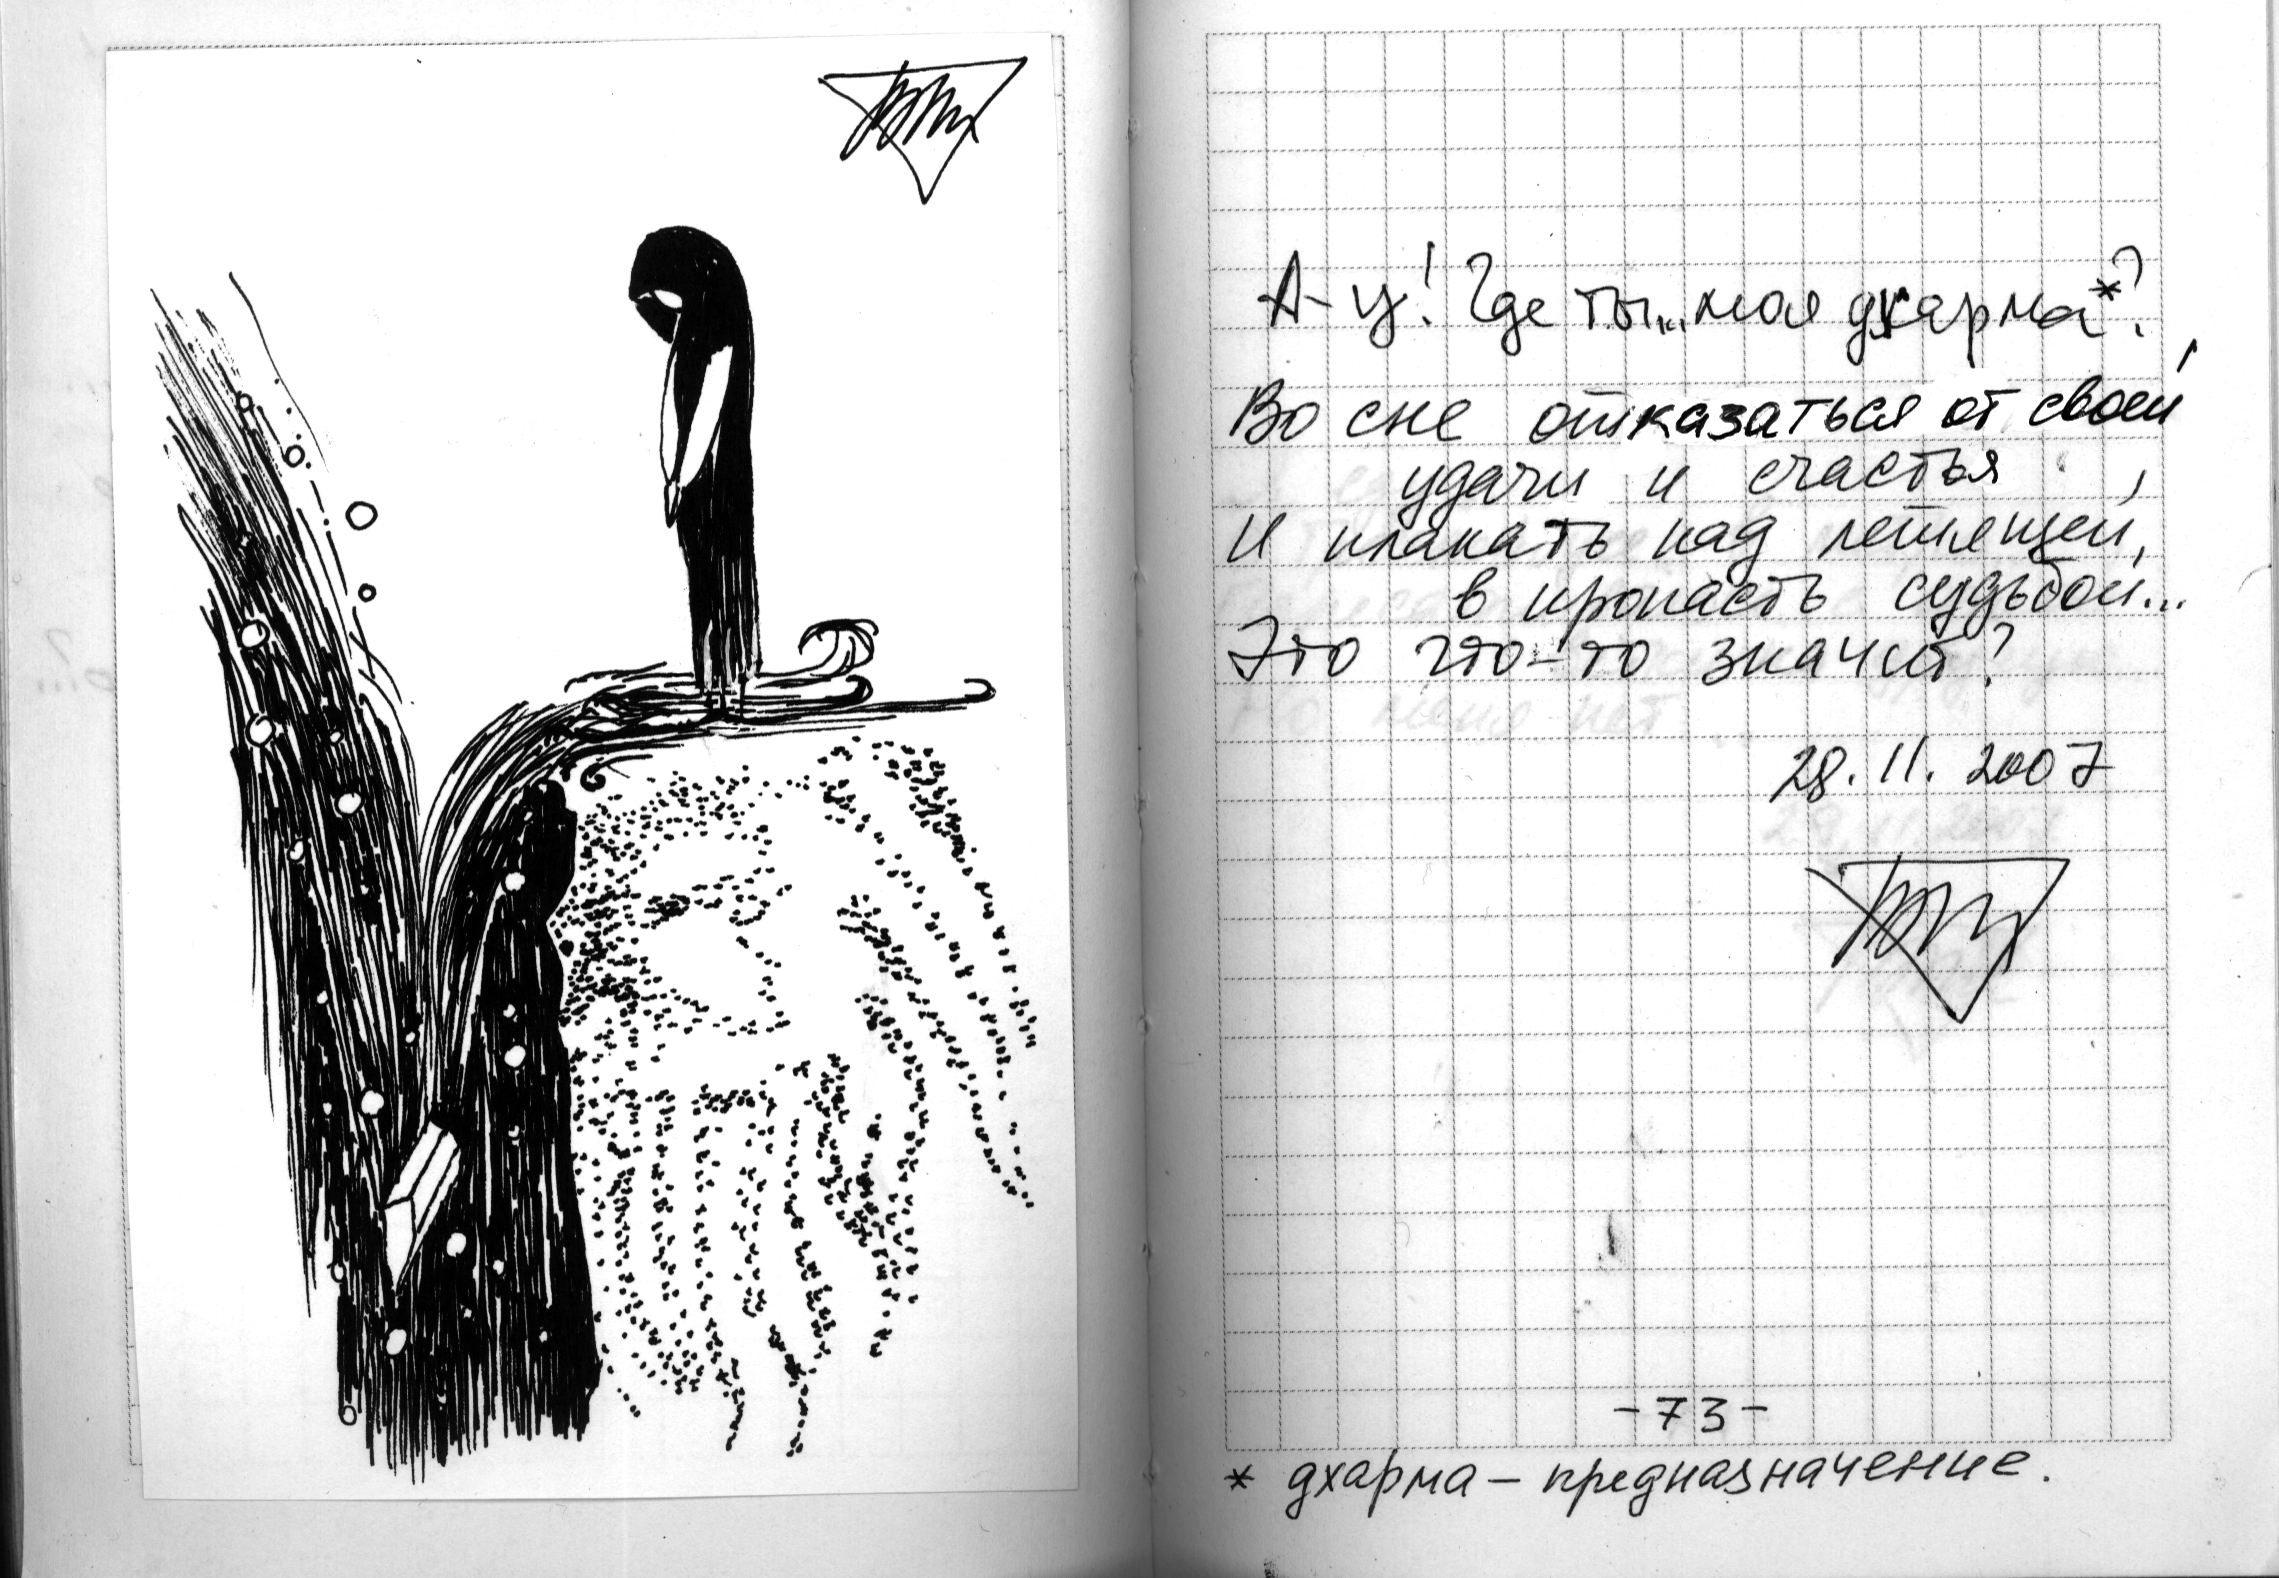 А-у! Где ты... моя дхарма*?
Во сне отказаться от своей
удачи и счастья,
И плакать над летящей,
в пропасть судьбой...
Это что-то значит?
28.11.2007
-73-
* дхарма – предназначение.